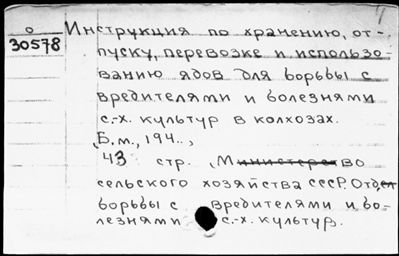 О Инструкция по хранению, от-
30578 пуску, перевозке и использо-
ванию ядов для борьбы с
вредителями и болезнями
с.-х. культур в колхозах.
Б.м., 194..,
43 стр. (Министерство
сельского хозяйства СССР. Отдел
борьбы с вредителями и бо-
лезнями с.-х. культур.